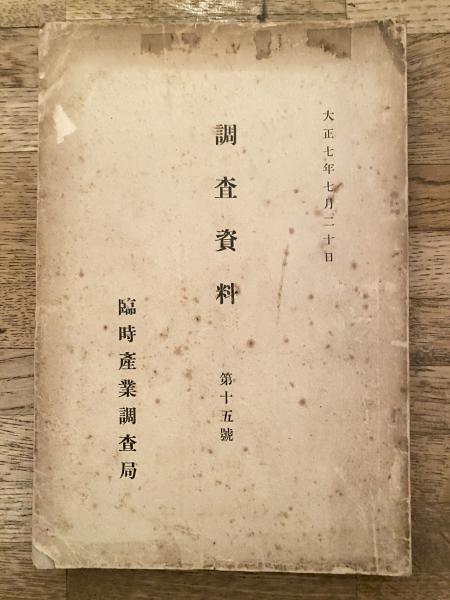 大正七年七月二十日
調査資料 第十五號
臨時產業調查局